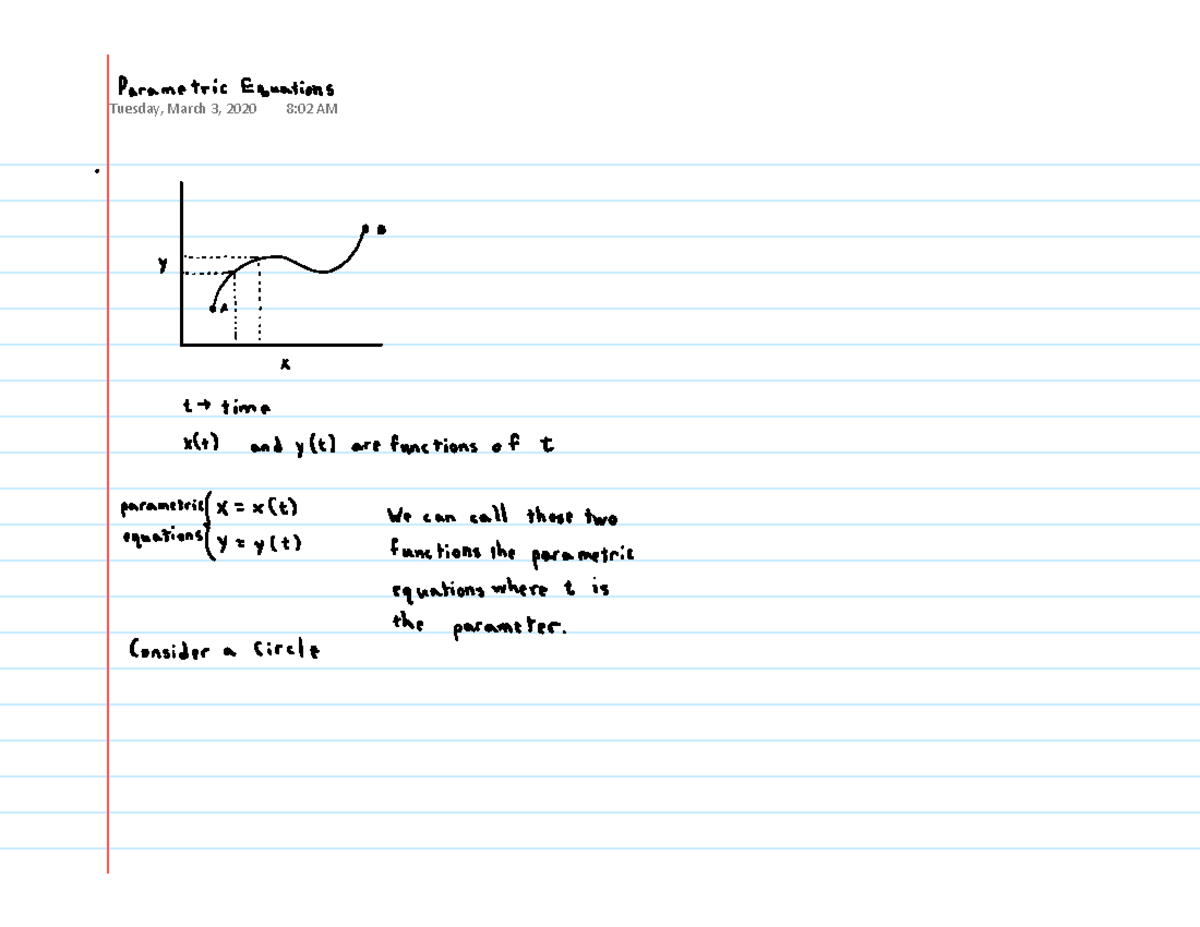 Parametric Equations
Tuesday, March 3, 2020 8:02 AM
B
y
A
x
t → time
x(t) and y(t) are functions of t
parametric equations { x = x(t)
y = y(t)
We can call these two
functions the parametric
equations where t is
the parameter.
Consider a Circle